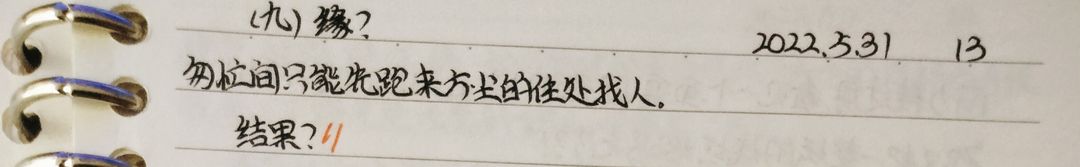 (九) 缘?
2022.5.31 13
匆忙间只能先跑来方尘的住处找人.
结果?